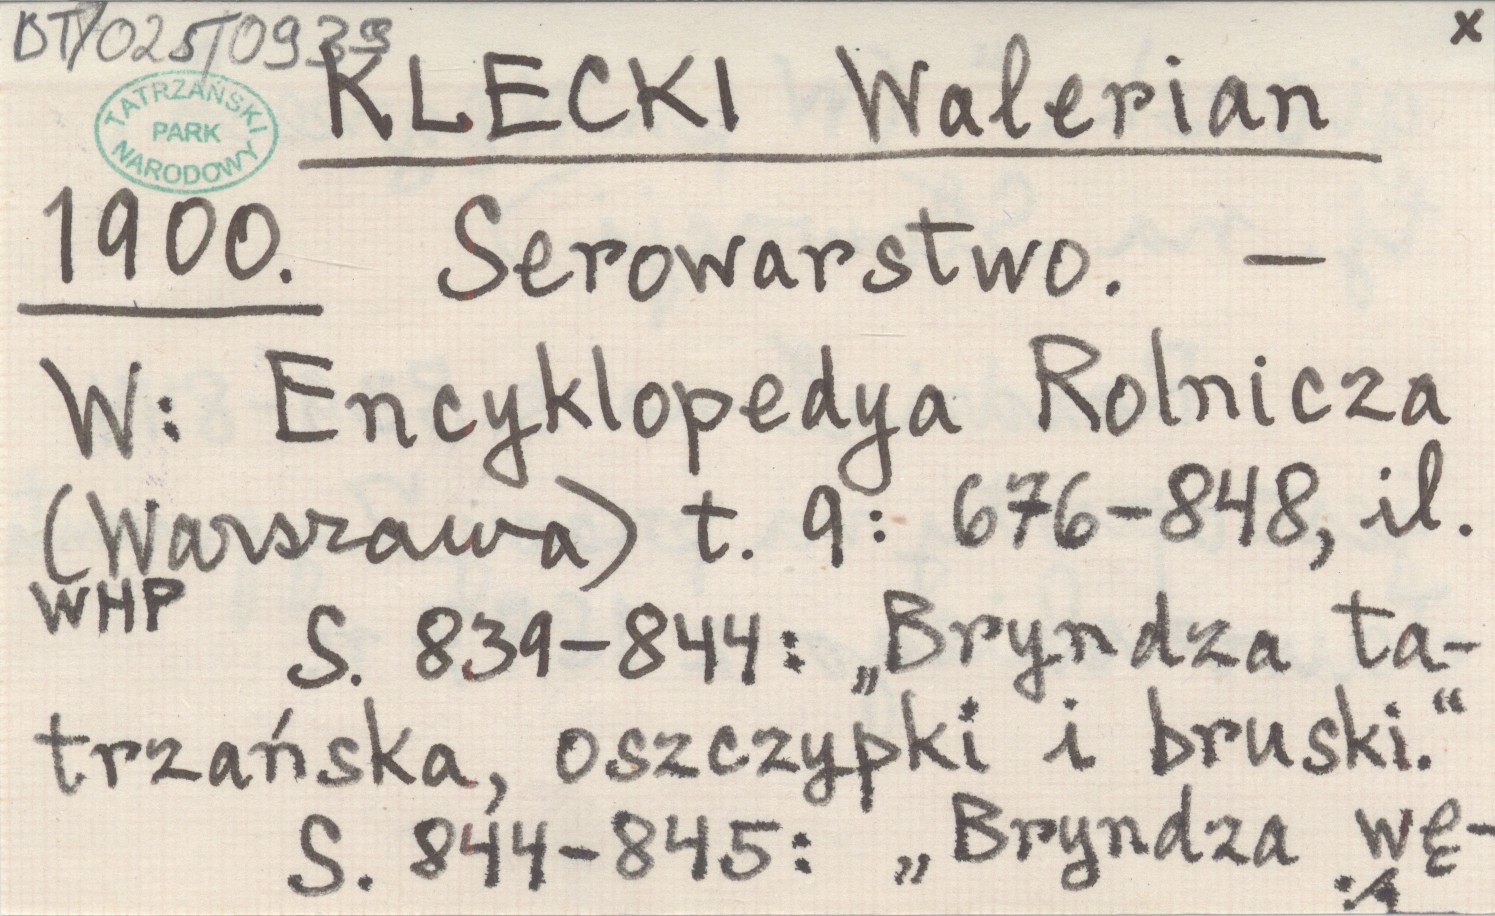 BT/025/0939
x
TATRZAŃSKI
PARK
NARODOWY
KLECKI Walerian
1900. Serowarstwo. —
W: Encyklopedya Rolnicza
(Warszawa) t. 9: 676-848, il.
WHP
S. 839-844: „Bryndza ta-
trzańska, oszczypki i bruski.“
S. 844-845: „Bryndza wę-
./.